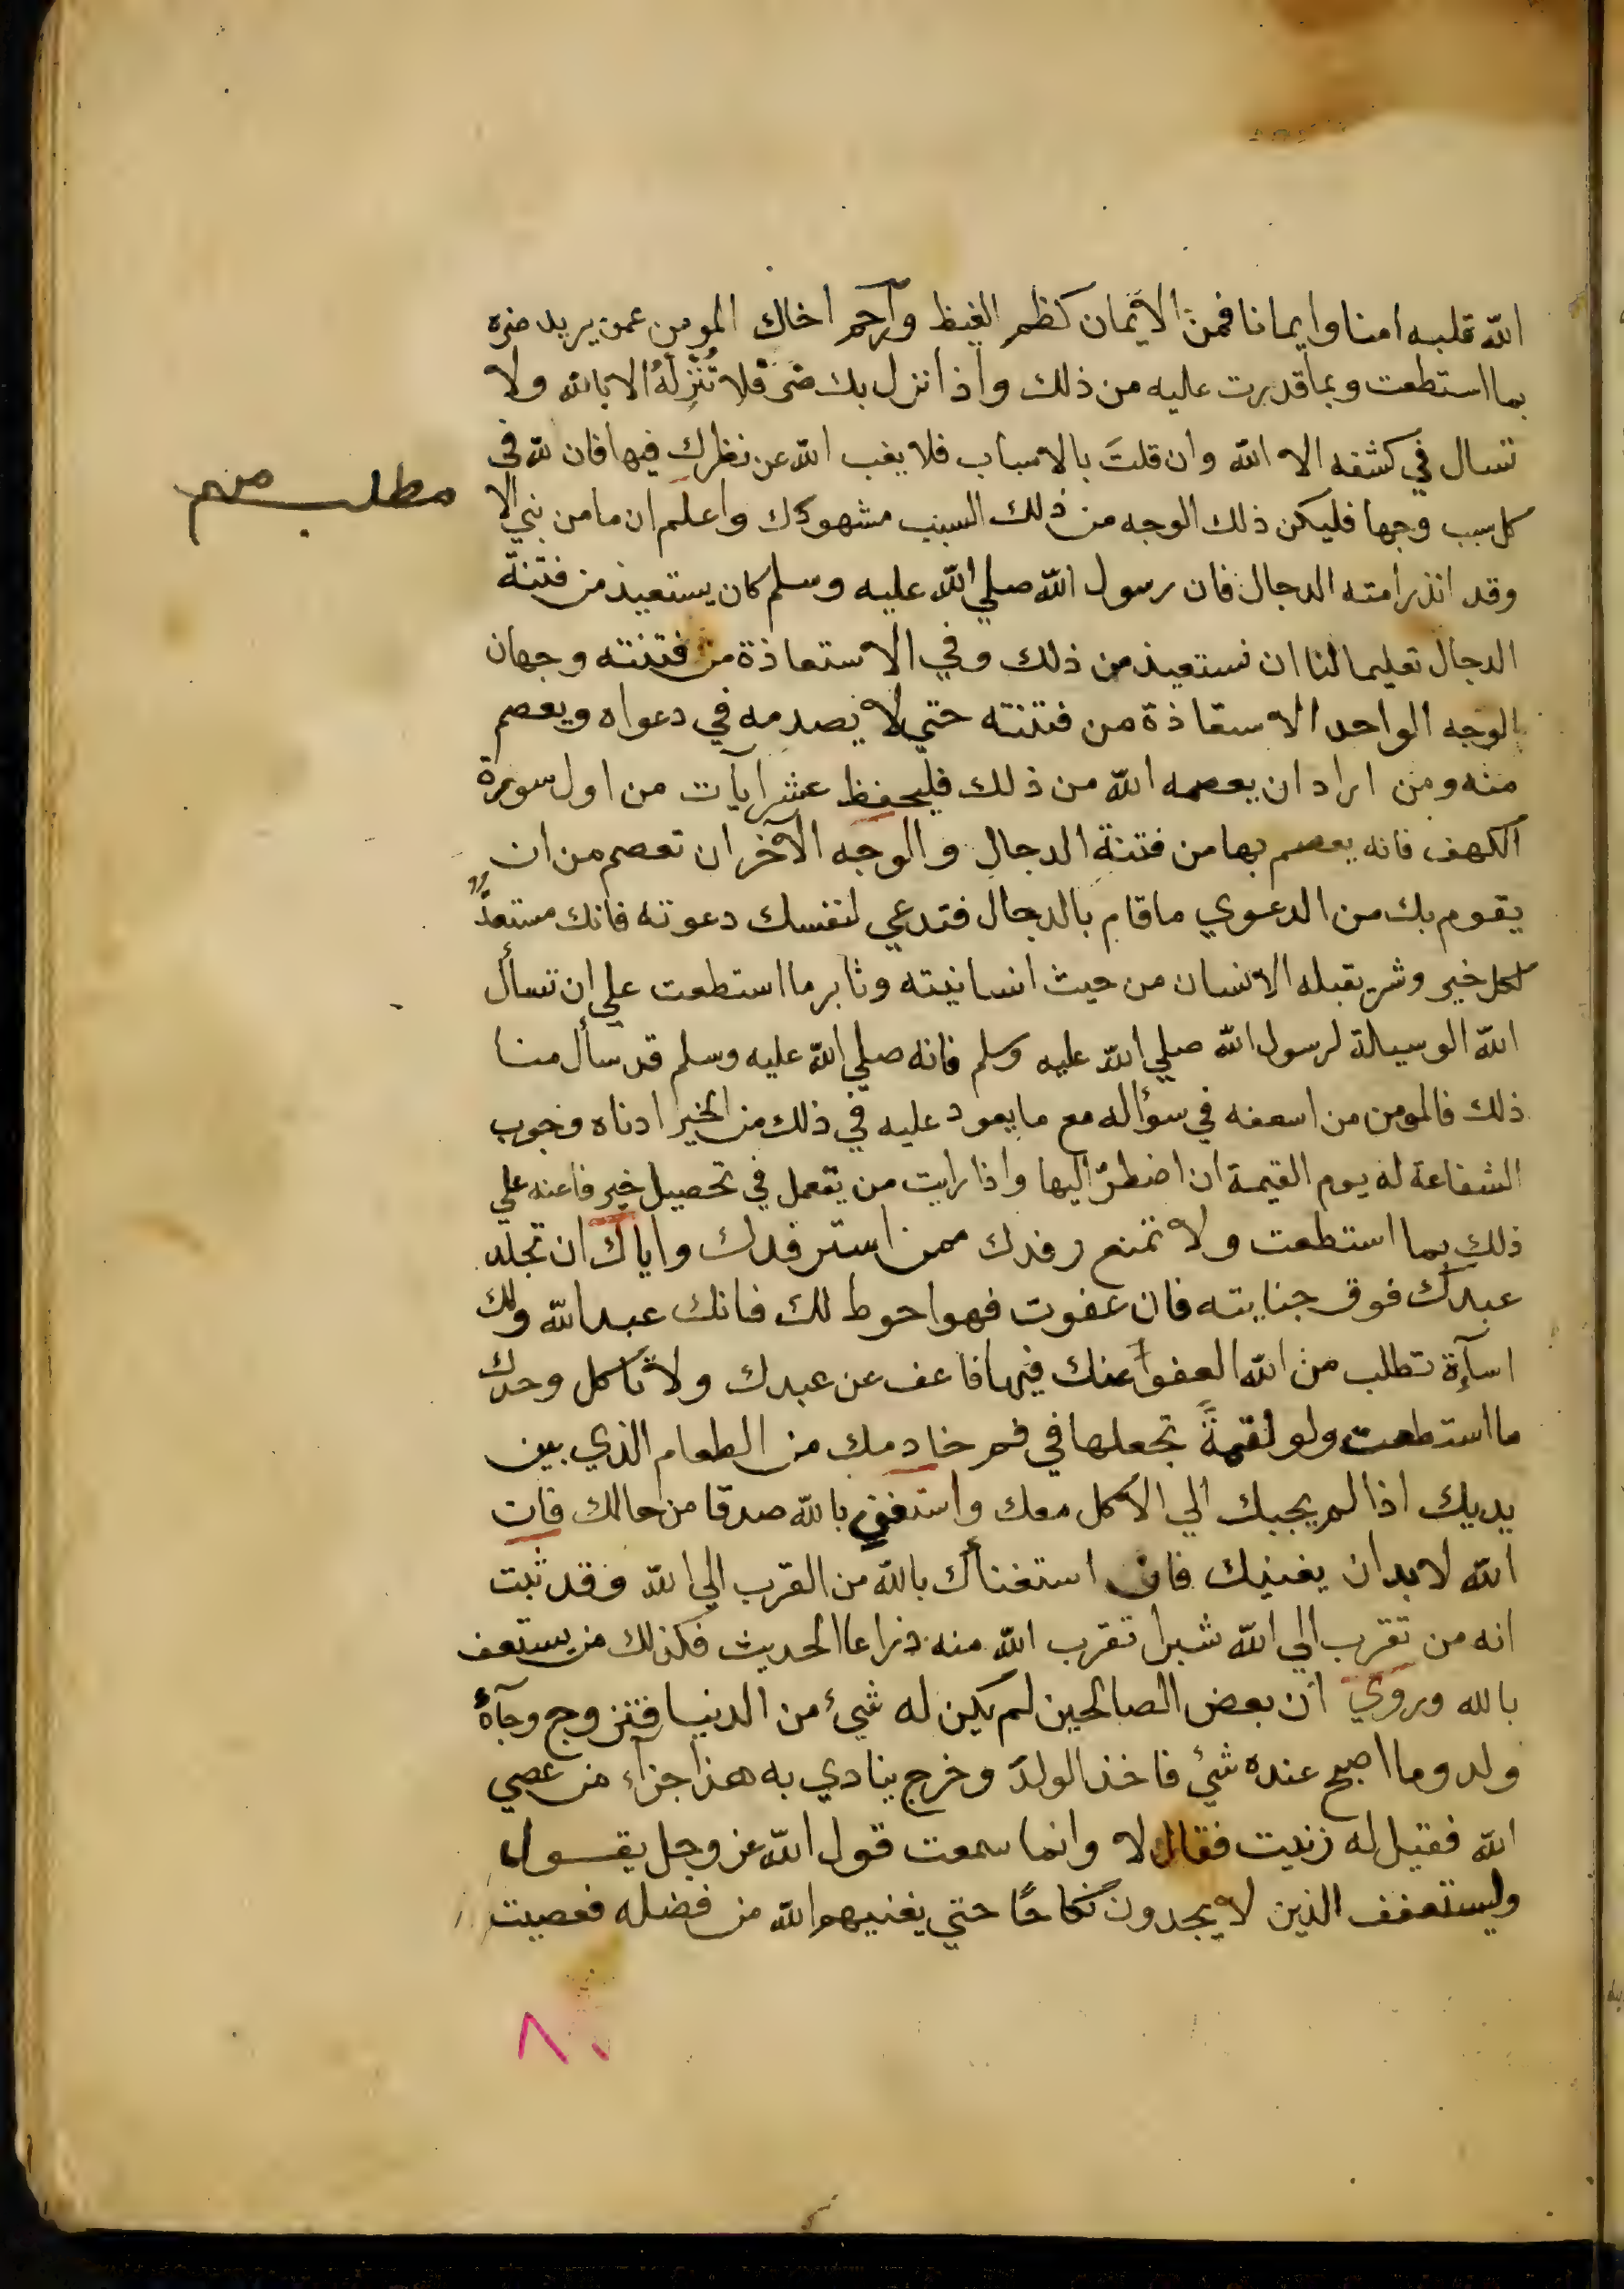 الله قلبه امنا وايمانا فمن الايمان كظم الغيظ وارحم اخاك المومن عمن يريد ضره
بما استطعت وبما قدرت عليه من ذلك واذا نزل بك ضر فلا تُنْزِلْهُ الا بالله ولا
تسال في كشفه الا الله وان قلتَ بالاسباب فلا يغب الله عن نظرك فيها فان لله في
كل سبب وجها فليكن ذلك الوجه من ذلك السبب مشهودك واعلم ان ما من نبي الا
مطلب مهم
وقد انذر امته الدجال فان رسول الله صلي الله عليه وسلم كان يستعيذ من فتنة
الدجال تعليما لنا ان نستعيذ من ذلك وفي الاستعاذة من فتنته وجهان
الوجه الواحد الاستعاذة من فتنته حتي لا يصدمه في دعواه ويعصم
منه ومن اراد ان يعصمه الله من ذلك فليحفظ عشر ايآت من اول سورة
الكهف فانه يعصم بها من فتنة الدجال والوجه الآخر ان تعصم من ان
يقوم بك من الدعوي ما قام بالدجال فتدعي لنفسك دعوته فانك مستعدٌّ
لكل خير وشر يقبله الانسان من حيث انسانيته وثابر ما استطعت علي ان تسأل
الله الوسيلة لرسول الله صلي الله عليه وسلم فانه صلي الله عليه وسلم قد سأل منا
ذلك فالمومن من اسعفه في سؤاله مع ما يعود عليه في ذلك من الخير ادناه وجوب
الشفاعة له يوم القيمة ان اضطرّ اليها واذا رايت من يتعمل في تحصيل خير فاعنه علي
ذلك بما استطعت ولا تمنع رفدك ممن استرفدك واياك ان تجلد
عبدك فوق جنايته فان عفوت فهوا حوط لك فانك عبد الله ولك
اسآءة تطلب من الله العفو عنك فيها فاعف عن عبدك ولا تاكل وحدك
ما استطعت ولو لقمةً تجعلها في فم خادمك من الطعام الذي بين
يديك اذا لم يجبك الي الاكل معك واستغنِ بالله صدقا من حالك فان
الله لا بد ان يغنيك فان استغناك بالله من القرب الي الله وقد ثبت
انه من تقرب الي الله شبرا تقرب الله منه ذراعا الحديث فكذلك من يستعف
بالله وروي ان بعض الصالحين لم يكن له شئ من الدنيا فتزوج وجآءهُ
ولد وما اصبح عنده شئ فاخذ الولد وخرج ينادي به هذا جزاء من عصي
الله فقيل له زنيت فقال لا وانما سمعت قول الله عز وجل يقول
وليستعفف الذين لا يجدون نكاحًا حتي يغنيهم الله من فضله فعصيت
٨٠